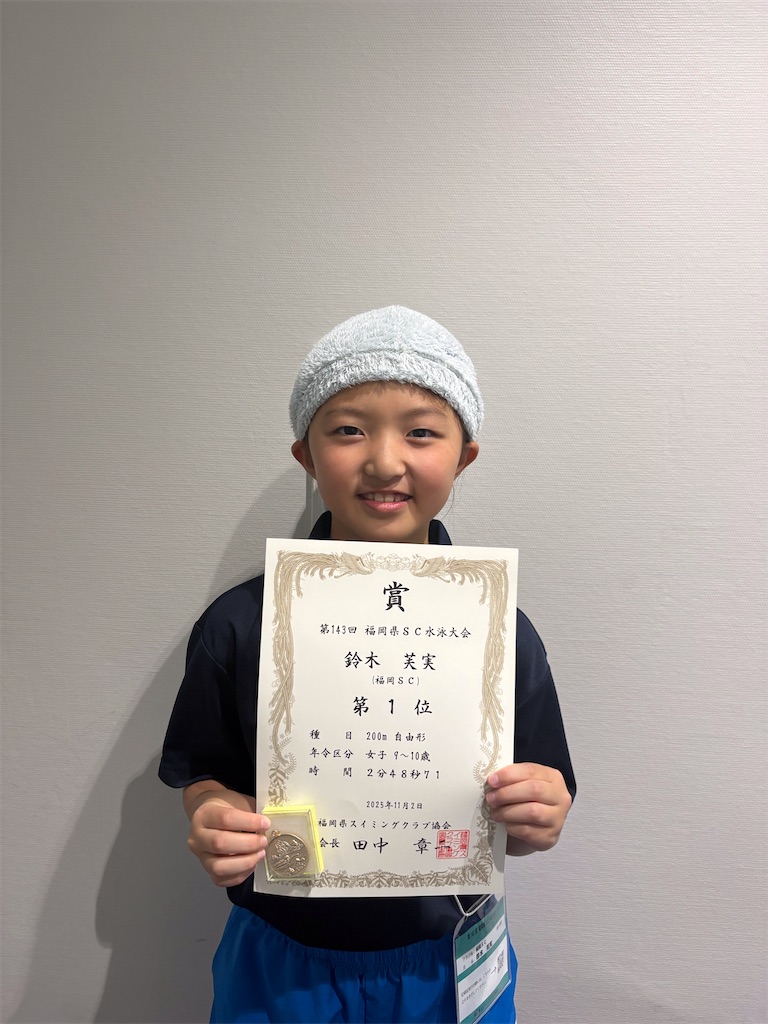 賞
第143回 福岡県SC水泳大会
鈴木 芙実
(福岡SC)
第 1 位
種 目 200m 自由形
年令区分 女子 9～10歳
時 間 2分48秒71
2025年11月2日
福岡県スイミングクラブ協会
会長 田中 章